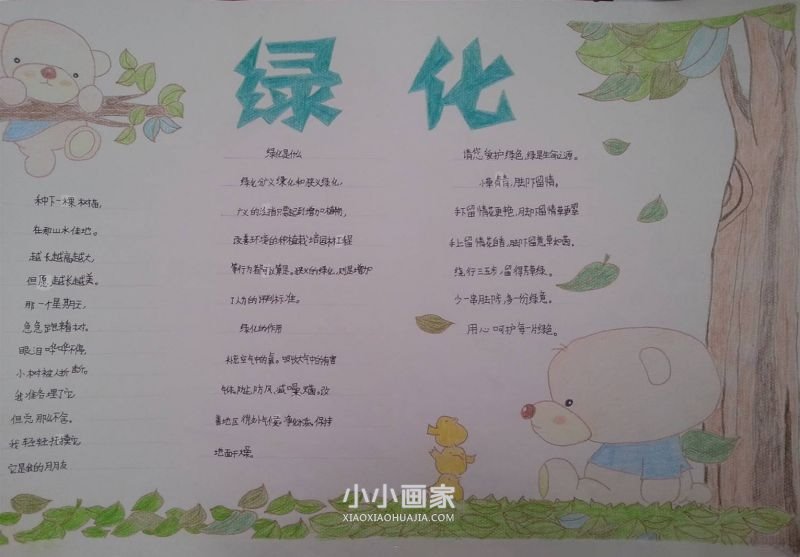 绿化
种下一棵树苗,
在那山水佳地。
越长越高越大,
但愿越长越美。
那一个星期天,
急急跑去看树。
眼泪哗哗不停,
小树被人折断。
我准备埋了它
但怎那么不舍。
我轻轻抚摸它
它是我的月月友
绿化是什么
绿化分广义绿化和狭义绿化,
广义的泛指只要起到增加植物,
改善环境的种植栽培园林工程
等行为都可以算是。狭义的绿化,则是增加
绿化的作用
补充空气中的氧。吸收大气中的有害
气体,防尘,防风,减噪,隔。改
善地区
地面干燥。
请您爱护绿色,绿是生命之源。
小草青青,脚下留情。
手下留情花更艳,脚下留情草更翠
手上留情花自香,脚下留意草如茵。
绕行三五步,留得芳草绿。
少一串脚印,多一份绿意。
用心呵护每一片绿色。
小小画家
XIAOXIAOHUAJIA.COM